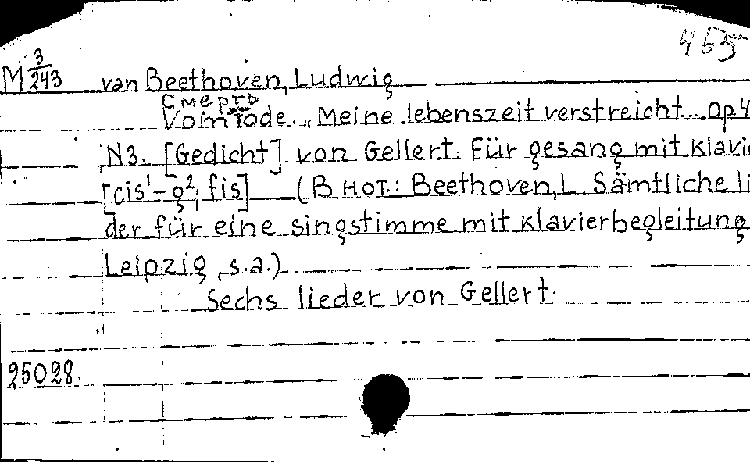 455
M 3/243 van Beethoven, Ludwig
Смерть
Vom Tode. „Meine lebenszeit verstreicht... op 4
N3. [Gedicht] von Gellert. Für gesang mit klavi
[cis¹-g², fis] (В нот.: Beethoven, L. Sämtliche li
der für eine singstimme mit klavierbegleitung
Leipzig, s.a.)
Sechs lieder von Gellert.
25028.